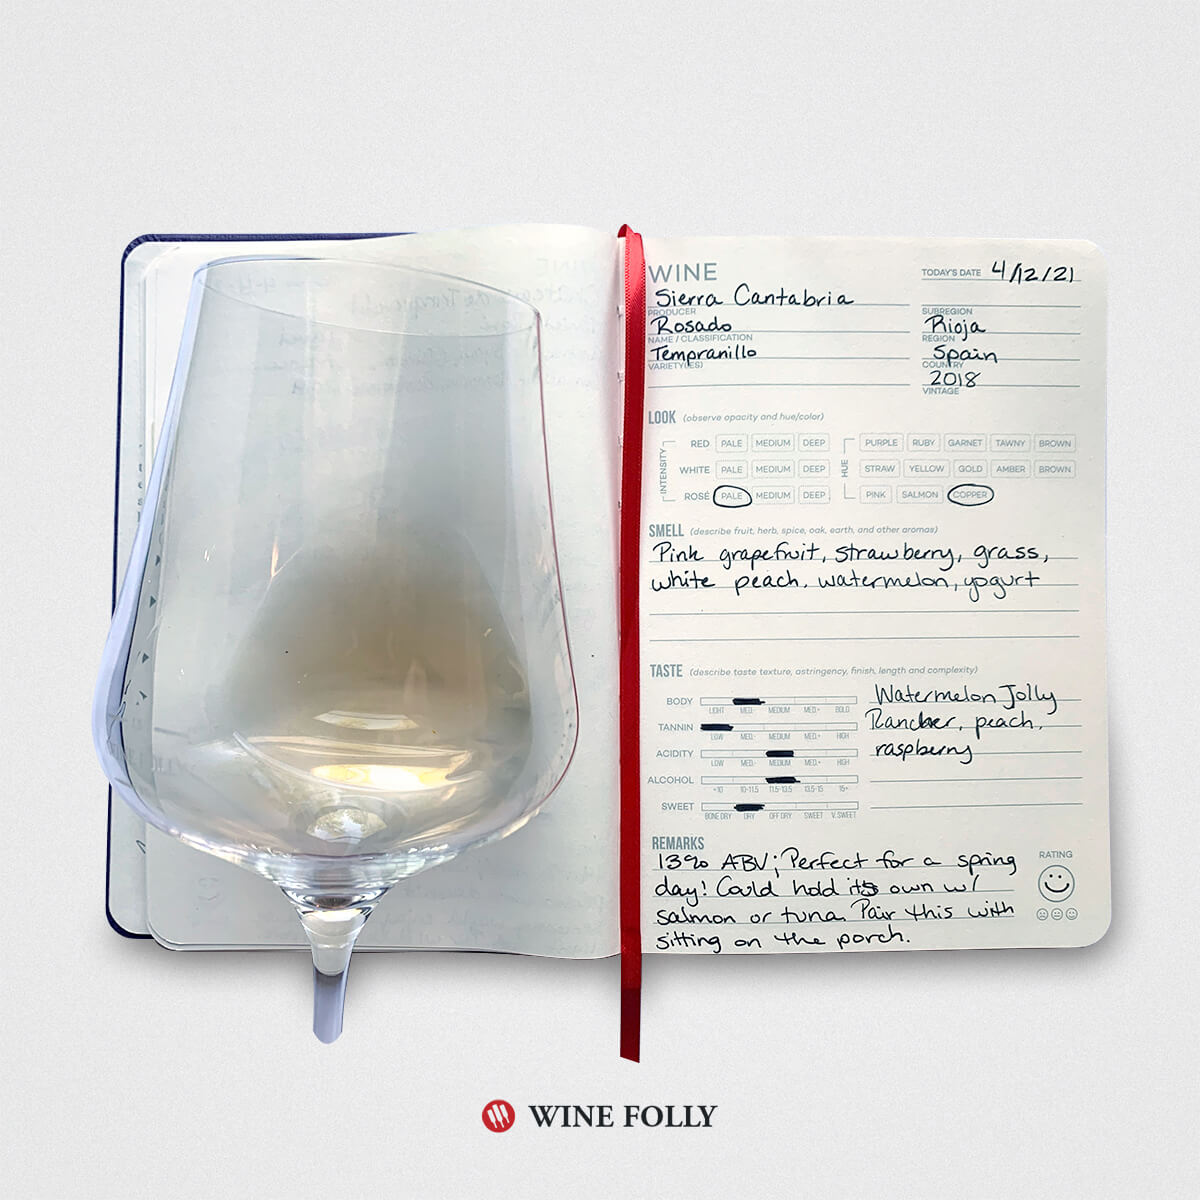 WINE
TODAY'S DATE 4/12/21
Sierra Cantabria
PRODUCER
SUBREGION
Rosado
Rioja
NAME / CLASSIFICATION
REGION
Tempranillo
Spain
VARIETY(IES)
COUNTRY
2018
VINTAGE
LOOK (observe opacity and hue/color)
INTENSITY
RED PALE MEDIUM DEEP
WHITE PALE MEDIUM DEEP
ROSÉ PALE MEDIUM DEEP
HUE
PURPLE RUBY GARNET TAWNY BROWN
STRAW YELLOW GOLD AMBER BROWN
PINK SALMON COPPER
SMELL (describe fruit, herb, spice, oak, earth, and other aromas)
Pink grapefruit, strawberry, grass,
white peach, watermelon, yogurt
TASTE (describe taste texture, astringency, finish, length and complexity)
BODY
LIGHT MED- MEDIUM MED+ BOLD
TANNIN
LOW MED- MEDIUM MED+ HIGH
ACIDITY
LOW MED- MEDIUM MED+ HIGH
ALCOHOL
<10 10-11.5 11.5-13.5 13.5-15 15+
SWEET
BONE DRY DRY OFF DRY SWEET V.SWEET
Watermelon Jolly
Rancher, peach,
raspberry
REMARKS
13% ABV; Perfect for a spring
day! Could hold its own w/
salmon or tuna. Pair this with
sitting on the porch.
RATING
WINE FOLLY